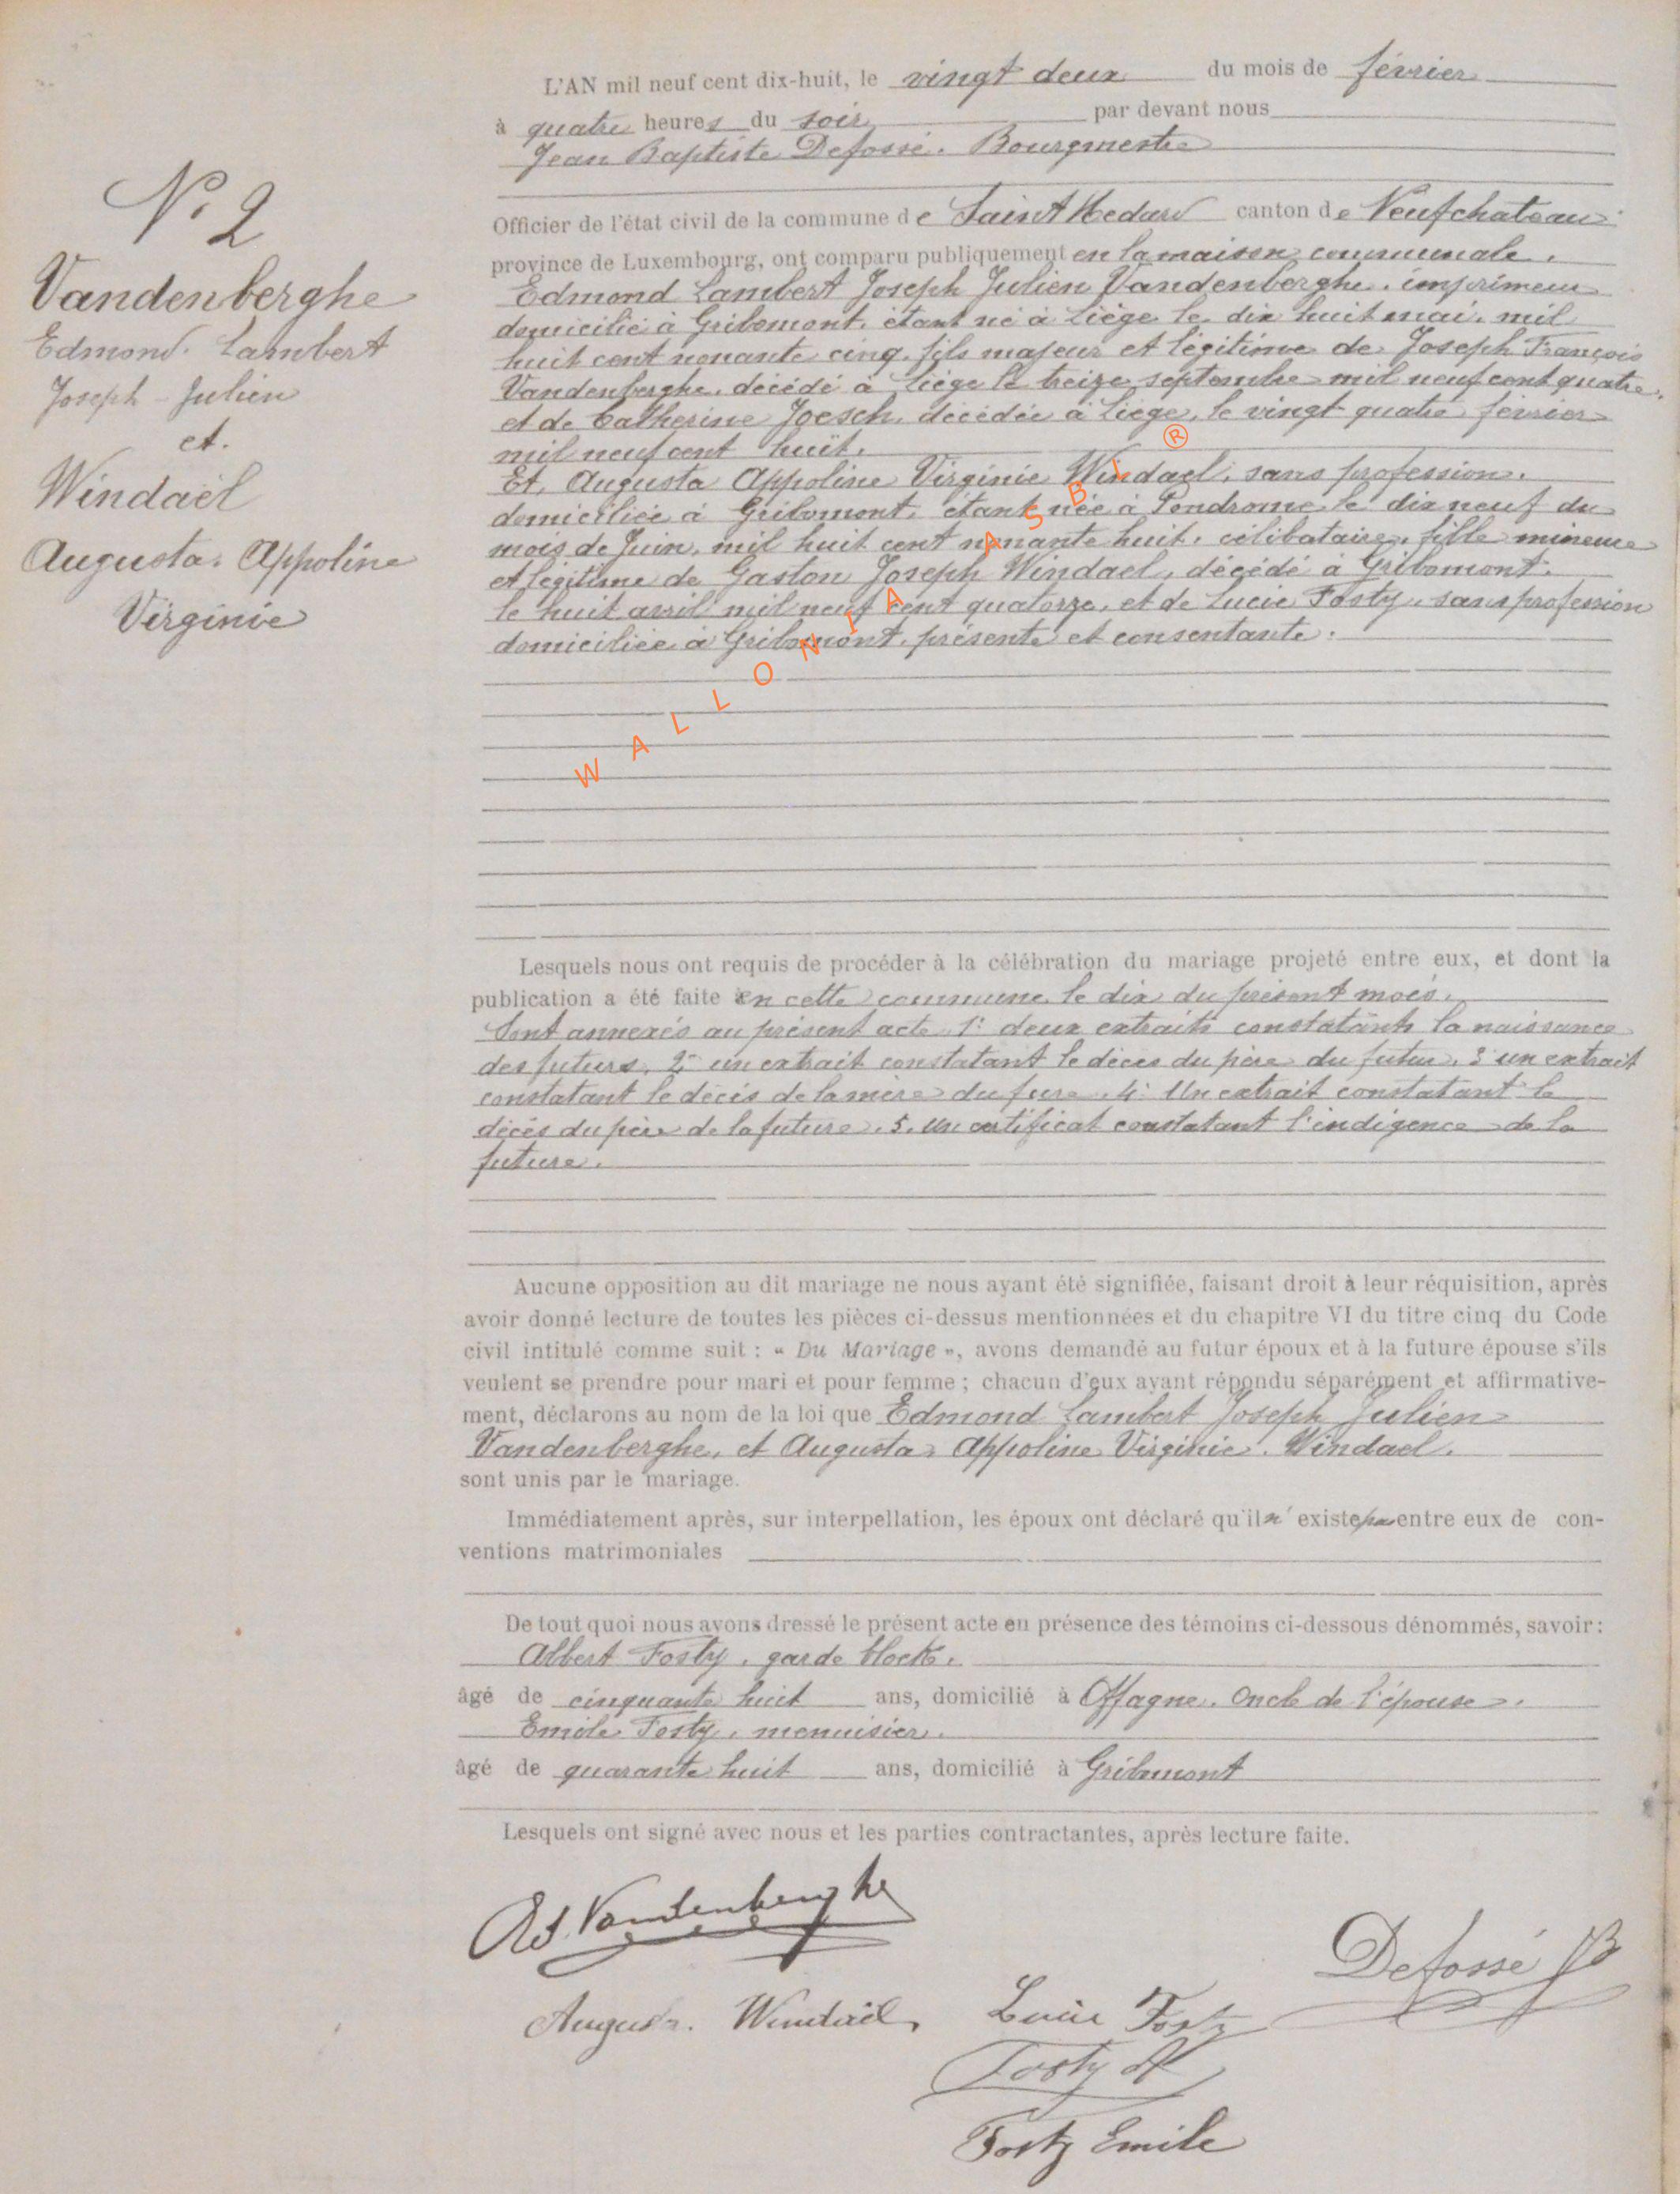 N° 2
Vandenberghe
Edmond. Lambert
Joseph - Julien
et.
Windaël
Augusta. Appoline
Virginie
L'AN mil neuf cent dix-huit, le vingt deux du mois de février
à quatre heures du soir par devant nous
Jean Baptiste Defossé. Bourgmestre
Officier de l'état civil de la commune de Saint Medard canton de Neufchateau
province de Luxembourg, ont comparu publiquement en la maison communale.
Edmond Lambert Joseph Julien Vandenberghe. imprimeur
domicilié à Gribomont, étant né à Liège le dix huit mai. mil
huit cent nonante cinq. fils majeur et légitime de Joseph François
Vandenberghe, décédé à Liège le treize septembre mil neuf cent quatre,
et de Catherine Joesch, décédée à Liège, le vingt quatre février
mil neuf cent huit.
Et, Augusta Appoline Virginie Windael, sans profession.
domiciliée à Gribomont, étant née à Pondrome le dix neuf du
mois de Juin, mil huit cent nonante huit. célibataire, fille mineure
et légitime de Gaston Joseph Windael, décédé à Gribomont.
le huit avril mil neuf cent quatorze, et de Lucie Fosty, sans profession
domiciliée à Gribomont, présente et consentante.
WALLONIA ASBL ®
Lesquels nous ont requis de procéder à la célébration du mariage projeté entre eux, et dont la
publication a été faite en cette commune le dix du présent mois.
Sont annexés au présent acte 1° deux extraits constatants la naissance
des futurs, 2° un extrait constatant le décès du père du futur, 3° un extrait
constatant le décès de la mère du fure. 4° Un extrait constatant le
décès du père de la future. 5. un certificat constatant l'indigence de la
future.
Aucune opposition au dit mariage ne nous ayant été signifiée, faisant droit à leur réquisition, après
avoir donné lecture de toutes les pièces ci-dessus mentionnées et du chapitre VI du titre cinq du Code
civil intitulé comme suit : « Du Mariage », avons demandé au futur époux et à la future épouse s'ils
veulent se prendre pour mari et pour femme ; chacun d'eux ayant répondu séparément et affirmative-
ment, déclarons au nom de la loi que Edmond Lambert Joseph Julien
Vandenberghe, et Augusta Appoline Virginie. Windael.
sont unis par le mariage.
Immédiatement après, sur interpellation, les époux ont déclaré qu'il n'existe pas entre eux de con-
ventions matrimoniales
De tout quoi nous avons dressé le présent acte en présence des témoins ci-dessous dénommés, savoir :
Albert Fosty, garde block.
âgé de cinquante huit ans, domicilié à Offagne. Oncle de l'épouse.
Emile Fosty, menuisier.
âgé de quarante huit ans, domicilié à Gribomont
Lesquels ont signé avec nous et les parties contractantes, après lecture faite.
Ed. Vandenberghe
Defossé JB
Augusta. Windaël
Lucie Fosty
Fosty A
Fosty Emile